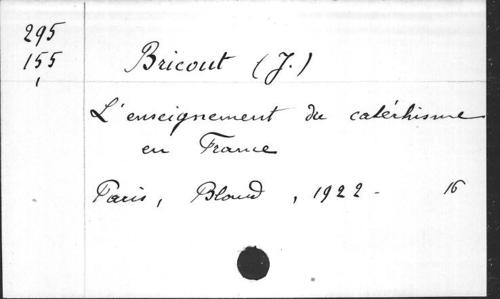 295
155
1
Bricout (J.)
L'enseignement du catéchisme
en France
Paris, Bloud, 1922 - 16